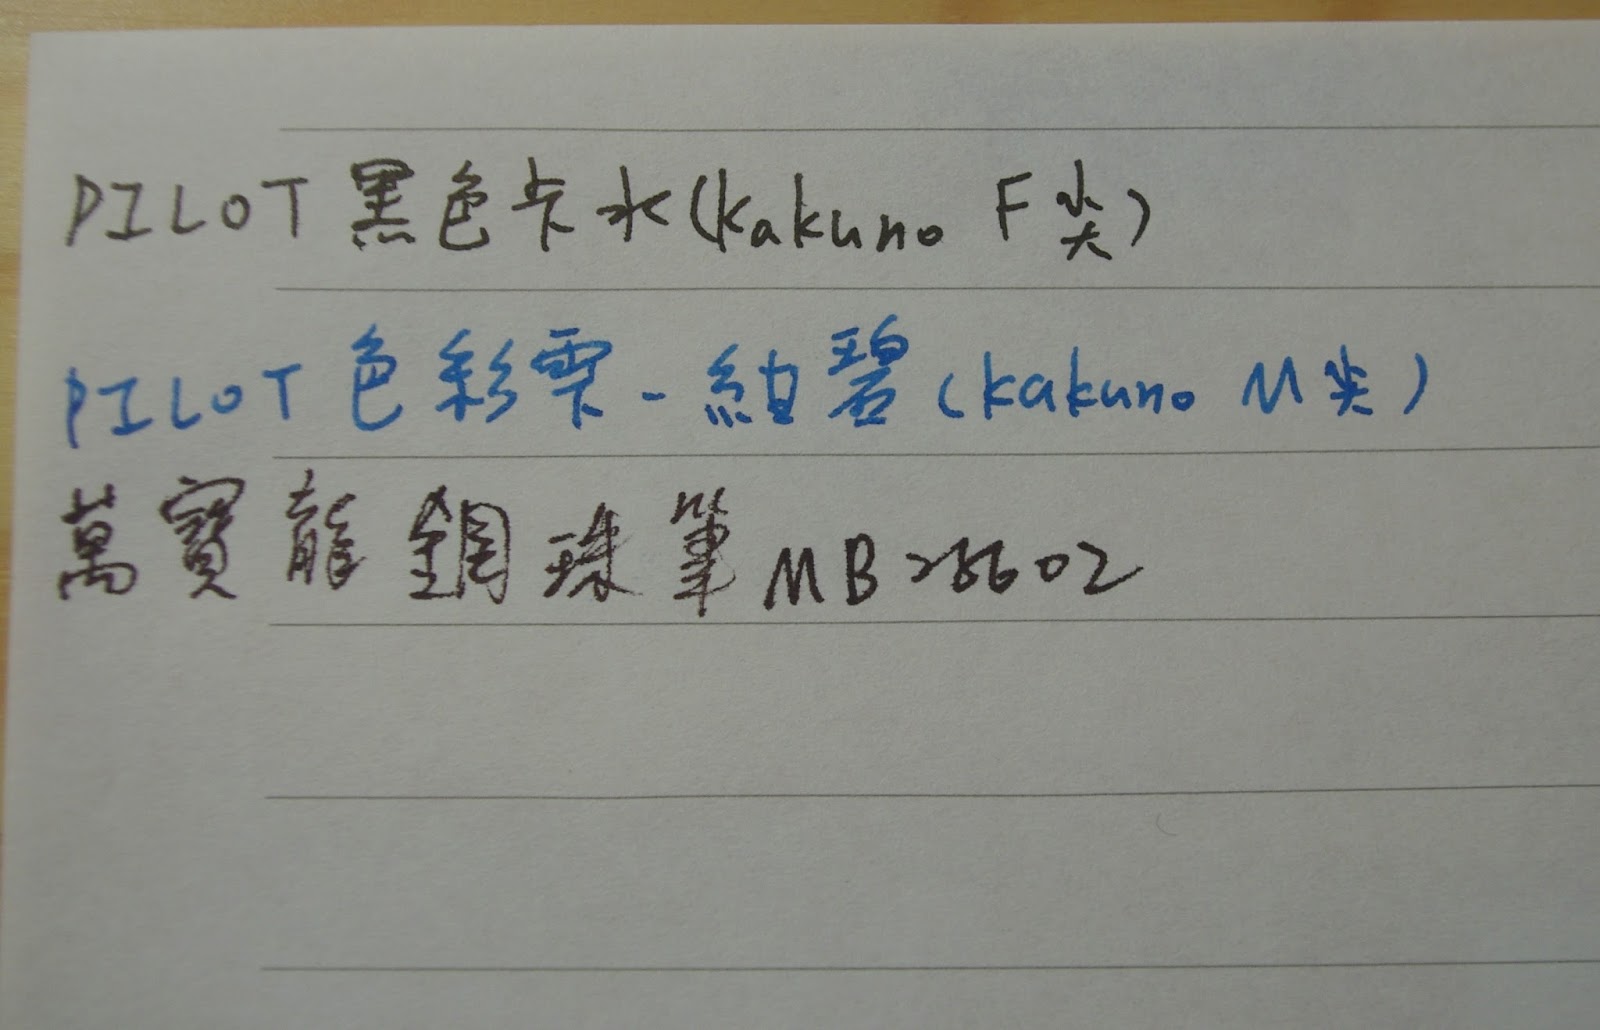 PILOT 黑色卡水(kakuno F尖)
PILOT 色彩雫-紺碧(kakuno M尖)
萬寶龍鋼珠筆 MB 25602